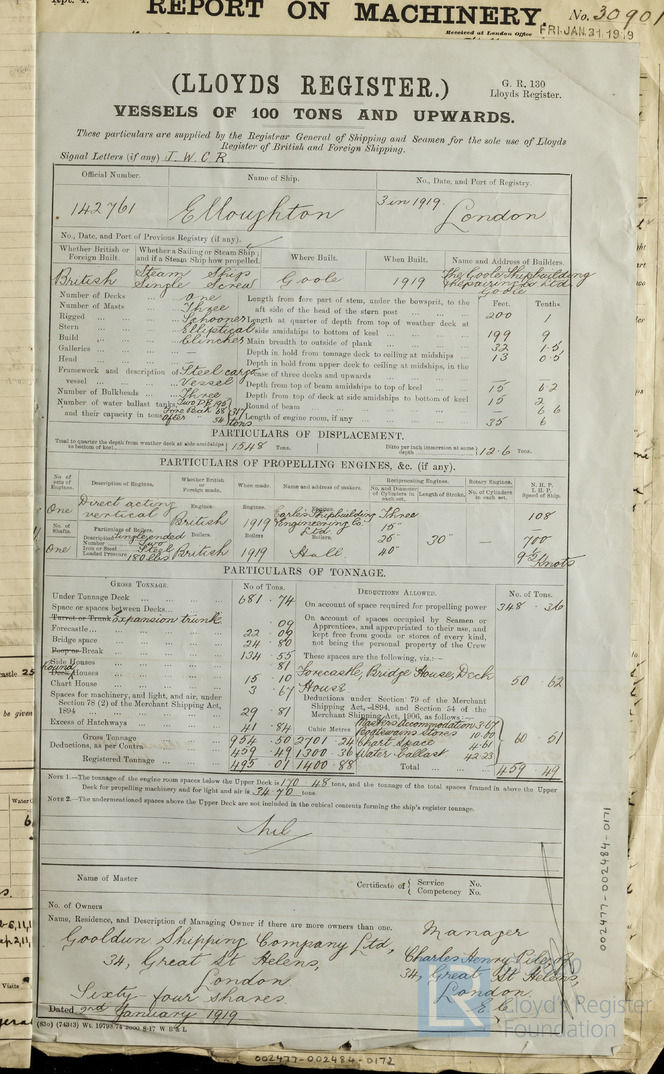 Rpt. 4.
REPORT ON MACHINERY.
No. 30901
Received at London Office
FRI. JAN. 31 1919
(LLOYDS REGISTER.)
G. R. 130
Lloyds Register.
VESSELS OF 100 TONS AND UPWARDS.
These particulars are supplied by the Registrar General of Shipping and Seamen for the sole use of Lloyds
Register of British and Foreign Shipping.
Signal Letters (if any) J. W. C. R.
Official Number. Name of Ship. No., Date, and Port of Registry.
142761 Elloughton 3 in 1919. London
No., Date, and Port of Previous Registry (if any).
Whether British or Foreign Built. Whether a Sailing or Steam Ship; and if a Steam Ship how propelled. Where Built. When Built. Name and Address of Builders.
British Steam Ship Single Screw Goole 1919 The Goole Shipbuilding & Repairing Co Ltd Goole
Number of Decks One
Number of Masts Three
Rigged Schooner
Stern Elliptical
Build Clincher
Galleries —
Head —
Framework and description of vessel Steel cargo Vessel
Number of Bulkheads Three
Number of water ballast tanks, and their capacity in tons Two D.B. 195 Fore Peak 68 After " 54 317 tons
Feet. Tenths
Length from fore part of stem, under the bowsprit, to the aft side of the head of the stern post 200 1
Length at quarter of depth from top of weather deck at side amidships to bottom of keel 199 9
Main breadth to outside of plank 32 1.5
Depth in hold from tonnage deck to ceiling at midships 13 0.5
Depth in hold from upper deck to ceiling at midships, in the case of three decks and upwards —
Depth from top of beam amidships to top of keel 15 62
Depth from top of deck at side amidships to bottom of keel 15 2
Round of beam — 66
Length of engine room, if any 35 6
PARTICULARS OF DISPLACEMENT.
Total to quarter the depth from weather deck at side amidships to bottom of keel 1548 Tons. Ditto per inch immersion at same depth 12.6 Tons.
PARTICULARS OF PROPELLING ENGINES, &c. (if any).
No. of sets of Engines. Description of Engines. Whether British or Foreign made. When made. Name and address of makers. Reciprocating Engines. No. and Diameter of Cylinders in each set. Length of Stroke. Rotary Engines. No. of Cylinders in each set. N. H. P. I. H. P. Speed of Ship.
One Direct acting vertical Engines. British Engines. 1919 Engines. Earle's Shipbuilding & Engineering Co. Ltd Three 15" 108
No. of Shafts. Particulars of Boilers. Boilers Boilers Boilers.
Description Single ended
Number Two
Iron or Steel Steel
Loaded Pressure 180 lbs
One British 1919 Hull 40" 30" — 700 9½ Knots
PARTICULARS OF TONNAGE.
GROSS TONNAGE. No of Tons.
Under Tonnage Deck 681 . 74
Space or spaces between Decks
Turret or Trunk Expansion trunk . 09
Forecastle 22 . 09
Bridge space 24 . 80
Poop or Break 134 . 55
Side Houses . 81
Deck Houses Round 15 . 10
Chart House 3 . 67
Spaces for machinery, and light, and air, under Section 78 (2) of the Merchant Shipping Act, 1894 29 . 81
Excess of Hatchways 41 . 84
Cubic Metres
Gross Tonnage 954 . 50 2701 . 24
Deductions, as per Contra 459 . 49 1300 . 36
Registered Tonnage 495 . 01 1400 . 88
DEDUCTIONS ALLOWED. No. of Tons.
On account of space required for propelling power 348 . 36
On account of spaces occupied by Seamen or Apprentices, and appropriated to their use, and kept free from goods or stores of every kind, not being the personal property of the Crew
These spaces are the following, viz.:—
Forecastle, Bridge House, Deck House 50 . 62
Deductions under Section 79 of the Merchant Shipping Act, 1894, and Section 54 of the Merchant Shipping Act, 1906, as follows:—
Masters accommodation 3.67
Boatswains Stores 10.00
Chart Space 4.61
Water Ballast 42.23
60 51
Total 459 . 49
NOTE 1.—The tonnage of the engine room spaces below the Upper Deck is 170.48 tons, and the tonnage of the total spaces framed in above the Upper
Deck for propelling machinery and for light and air is 34.70 tons.
NOTE 2.—The undermentioned spaces above the Upper Deck are not included in the cubical contents forming the ship's register tonnage.
Nil
Name of Master
Certificate of { Service No.
Competency No.
No. of Owners
Name, Residence, and Description of Managing Owner if there are more owners than one.
Gooldun Shipping Company Ltd,
34, Great St Helens,
London
Sixty-four shares
Manager
Charles Henry
34, Great St Helens,
London
E C
Dated 2nd January 1919
(830) (74313) Wt. 19798/74 2000 8-17 W B & L
Lloyd's Register
Foundation
002477-002484-0171
002477-002484-0172